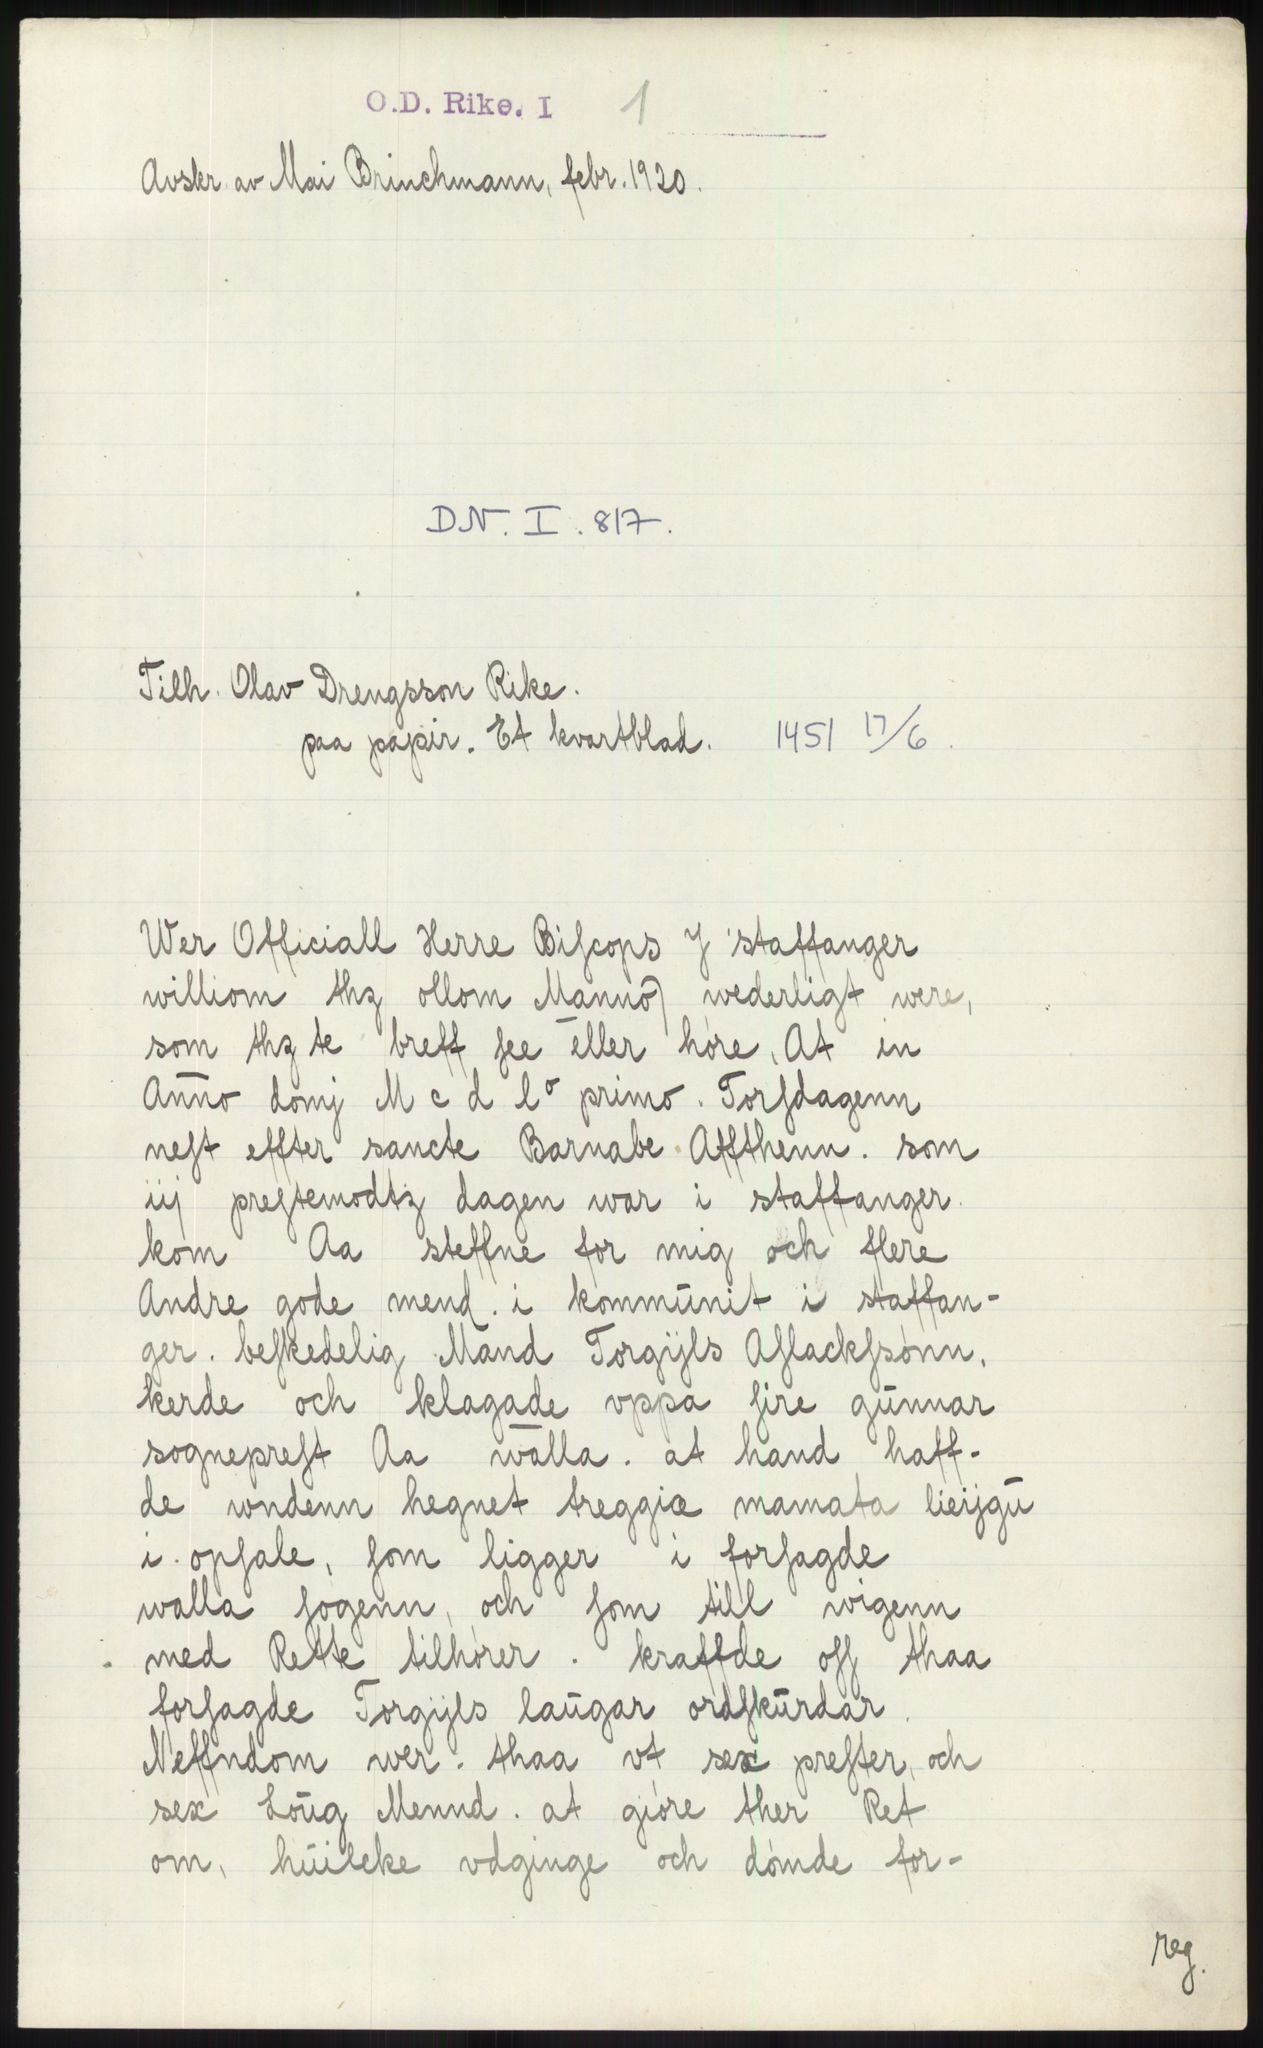 O.D. Rike. I 1
Avskr. av Mai Brinchmann, febr. 1920.
DN. I. 817.
Tilh. Olav Drengsson Rike.
paa papir. Et kvartblad. 1451 17/6.
Wer Officiall Herre Biſcops y staffanger
williom thz ollom Mannō wederligt were,
som thz te breff ſee eller høre, At in
Anno domj M c d lº primo. Torſdagenn
neſt effter sancte Barnabe Affthenn. som
iij preſtemodtz dagen war i staffanger.
kom Aa steffne for mig och flere
Andre gode mend. i kommūnit i staffan-
ger. beſkedelig Mand Torgijls Aſlackſsønn.
kerde och klagade vppa ſire gūnnar
sognepreſt Aa walla. at hand haff-
de wndenn hegnet treggiæ mamata lieijgū
i opſale, ſom ligger i forſagde
walla ſogenn, och ſom till wigenn
med Rette tilhører. kraffde off thaa
forſagde Torgijls laūgar ordſkūrdar.
Neffndom wer. thaa vt sex preſter, och
sex Loūg Mennd. at giøre ther Ret
om, hūilcke vdginge och dømde for-
reg.